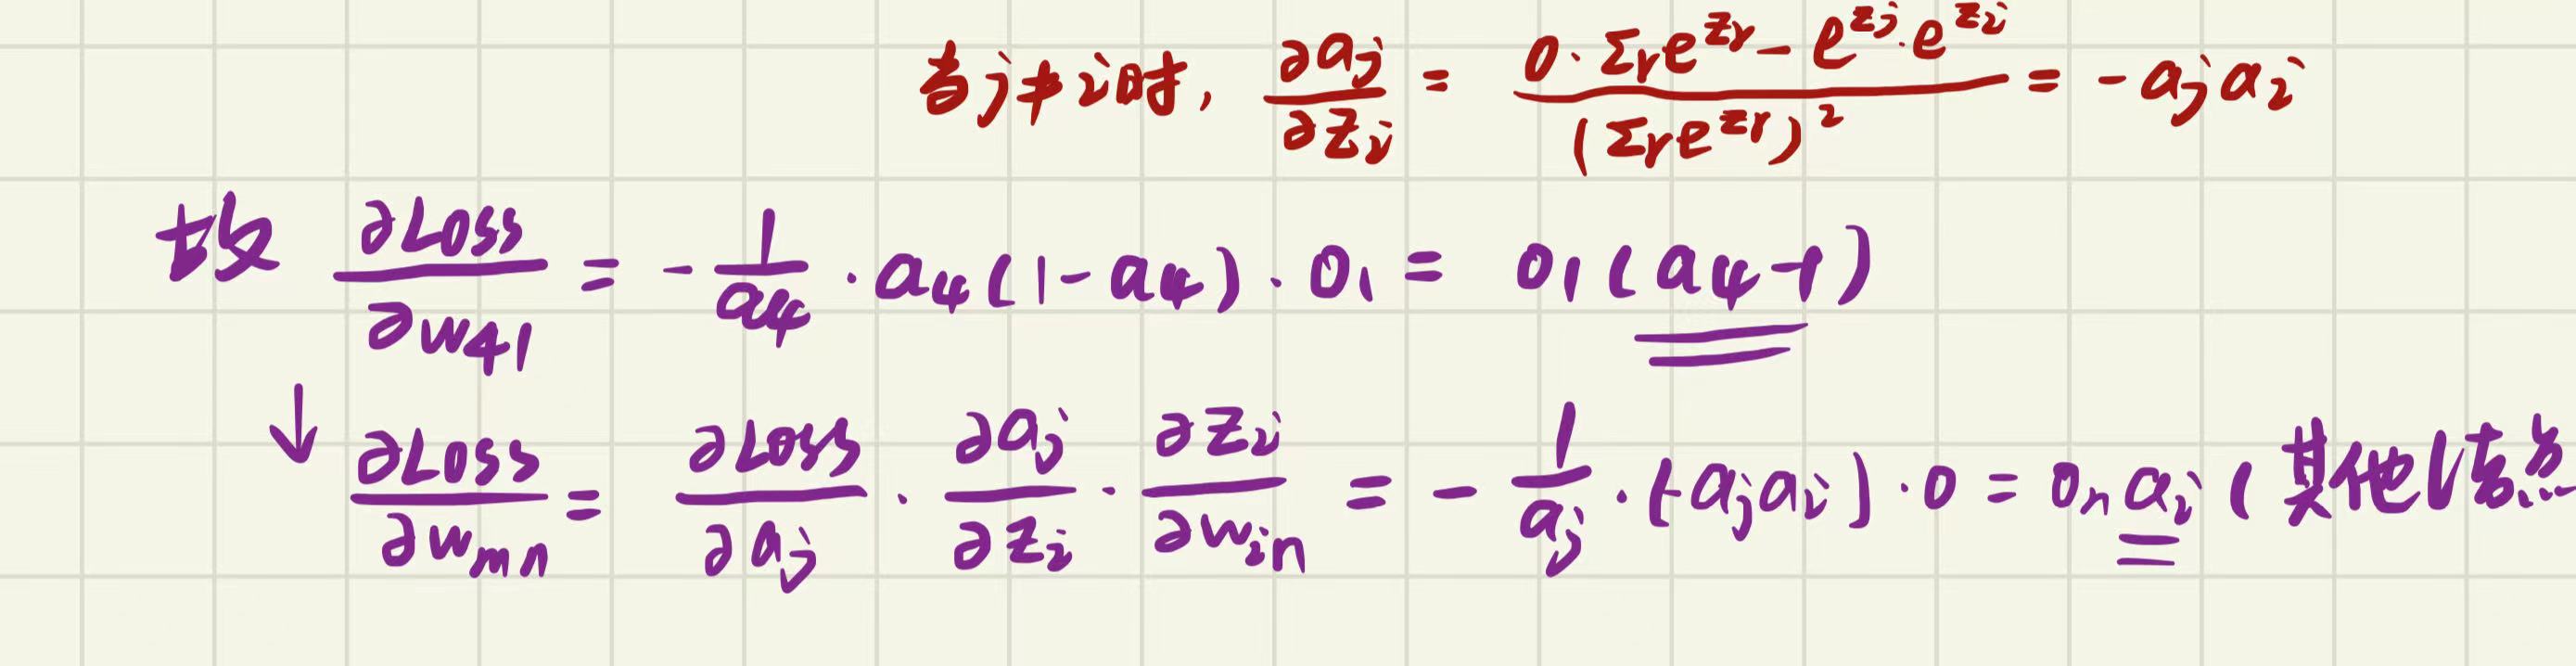 当j≠i时, ∂aj/∂zi = (0·Σr e^zr - e^zj·e^zi)/(Σr e^zr)² = -aj ai
故 ∂Loss/∂w41 = -1/a4 · a4(1-a4)·o1 = o1(a4-1)
↓ ∂Loss/∂wmn = ∂Loss/∂aj · ∂aj/∂zi · ∂zi/∂win = -1/aj · (-aj ai)·o = on ai (其他结点